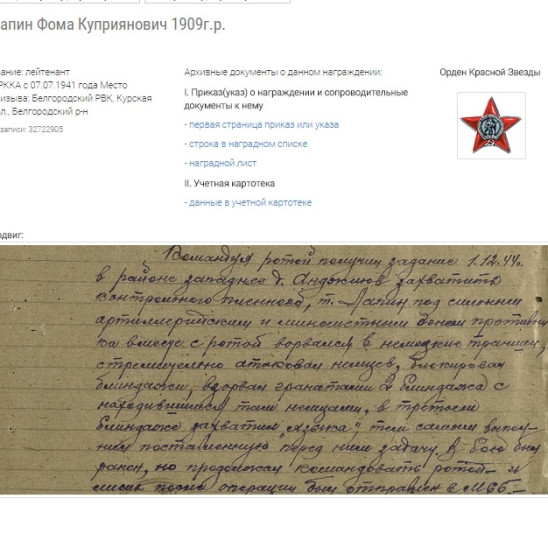 апин Фома Куприянович 1909г.р.
вание: лейтенант
РККА с 07.07.1941 года Место
ризыва: Белгородский РВК, Курская
л., Белгородский р-н
записи: 32722905
Архивные документы о данном награждении:
I. Приказ(указ) о награждении и сопроводительные
документы к нему
- первая страница приказ или указа
- строка в наградном списке
- наградной лист
II. Учетная картотека
- данные в учетной картотеке
Орден Красной Звезды
одвиг:
Командуя ротой получил задание 1.12.44г.
в районе западнее д. захватить
контрольного пленного, т. Лапин под сильным
артиллерийским и минометным огнем противни
ка вместе с ротой ворвался в немецкие траншеи,
стремительно атаковал немцев, блокировал
блиндажи, взорвал гранатами 2 блиндажа с
находившимися там немцами, в третьем
блиндаже захватил "языка", тем самым выпол
нил поставленную перед ним задачу. В бою был
ранен, но продолжал командовать ротой и
после операции был отправлен в МСБ.-